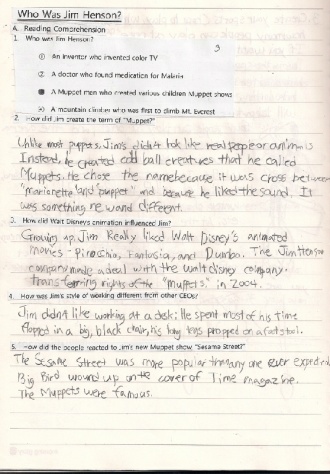 Who Was Jim Henson?
A. Reading Comprehension
1. Who was Jim Henson?
3
① An inventor who invented color TV
② A doctor who found medication for Malaria
A Muppet men who created various children Muppet shows
④ A mountain climber who was first to climb Mt. Everest
2. How did Jim create the term of "Muppet?"
Unlike most puppets, Jim's didn't look like real people or animals
Instead, he created odd ball creatures that he called
Muppets. He chose the name because it was cross between
"marionette" and "puppet" and because he liked the sound. It
was something new and different.
3. How did Walt Disney's animation influenced Jim?
Growing up, Jim Really liked Walt Disney's animated
movies - Pinocchio, Fantasia, and Dumbo. The Jim Henson
company made a deal with the walt disney company.
transferring rights of the "Muppets" in 2004.
4. How was Jim's style of working different from other CEOs?
Jim didn't like working at a desk; He spent most of his time
flopped in a big, black chair, his long legs propped on a footstool.
5. How did the people reacted to Jim's new Muppet show "Sesame Street?"
The Sesame Street was more popular than any one ever expected.
Big Bird wound up on the cover of Time magazine.
The Muppets were famous.